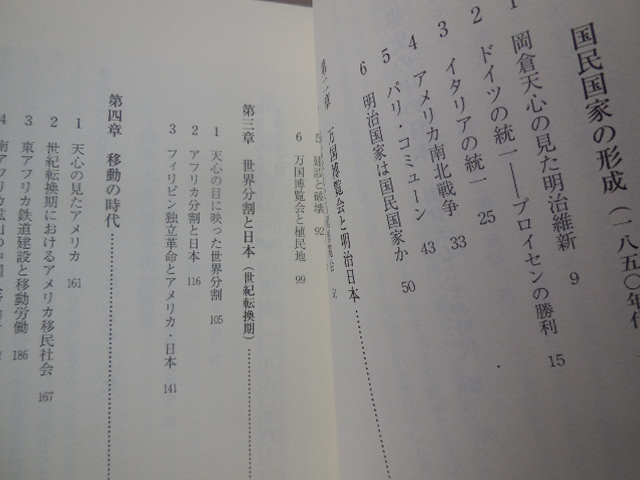 国民国家の形成（一八五〇年代
1 岡倉天心の見た明治維新 9
2 ドイツの統一――プロイセンの勝利 15
3 イタリアの統一 25
4 アメリカ南北戦争 33
5 パリ・コミューン 43
6 明治国家は国民国家か 50
第二章 万国博覧会と明治日本
5 建設と破壊 92
6 万国博覧会と植民地 99
第三章 世界分割と日本（世紀転換期）
1 天心の目に映った世界分割 105
2 アフリカ分割と日本 116
3 フィリピン独立革命とアメリカ・日本 141
第四章 移動の時代
1 天心の見たアメリカ 161
2 世紀転換期におけるアメリカ移民社会 167
3 東アフリカ鉄道建設と移動労働 186
4 南アフリカ